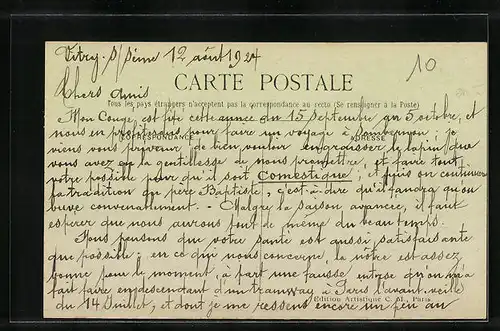 Vitry-s/Seine 12 août 1924
10
Chers amis
CARTE POSTALE
Tous les pays étrangers n'acceptent pas la correspondance au recto (Se renseigner à la Poste)
Mon Congé est fixé cette année du 15 septembre au 5 octobre, et
nous en profiterons pour faire un voyage à Sombernon; je
CORRESPONDANCE
ADRESSE
viens vous prévenir de bien vouloir engraisser le lapin que
vous avez eu la gentillesse de nous promettre, et faire tout
votre possible pour qu'il soit Comestigne; et puis on continuera
la tradition du père Baptiste, c'est-à-dire qu'il faudra qu'on
buve convenablement. - Malgré la saison avancée, il faut
espérer que nous aurons tout de même du beau temps.
Nous pensons que votre santé est aussi satisfaisante
que possible; en ce qui nous concerne, la nôtre est assez
bonne pour le moment, à part une fausse entorse qu'on m'a
fait faire en descendant d'un tramway à Paris l'avant-veille
Edition Artistique C. M., Paris
du 14 Juillet, et dont je me ressens encore un peu au